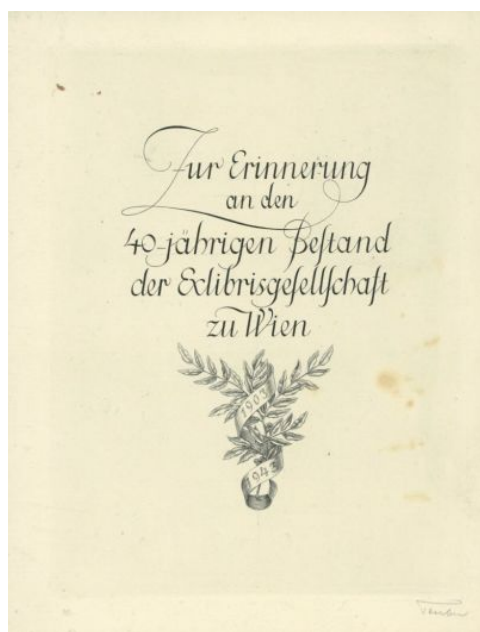 Zur Erinnerung
an den
40-jährigen Beſtand
der Exlibrisgeſellſchaft
zu Wien
1903
1943